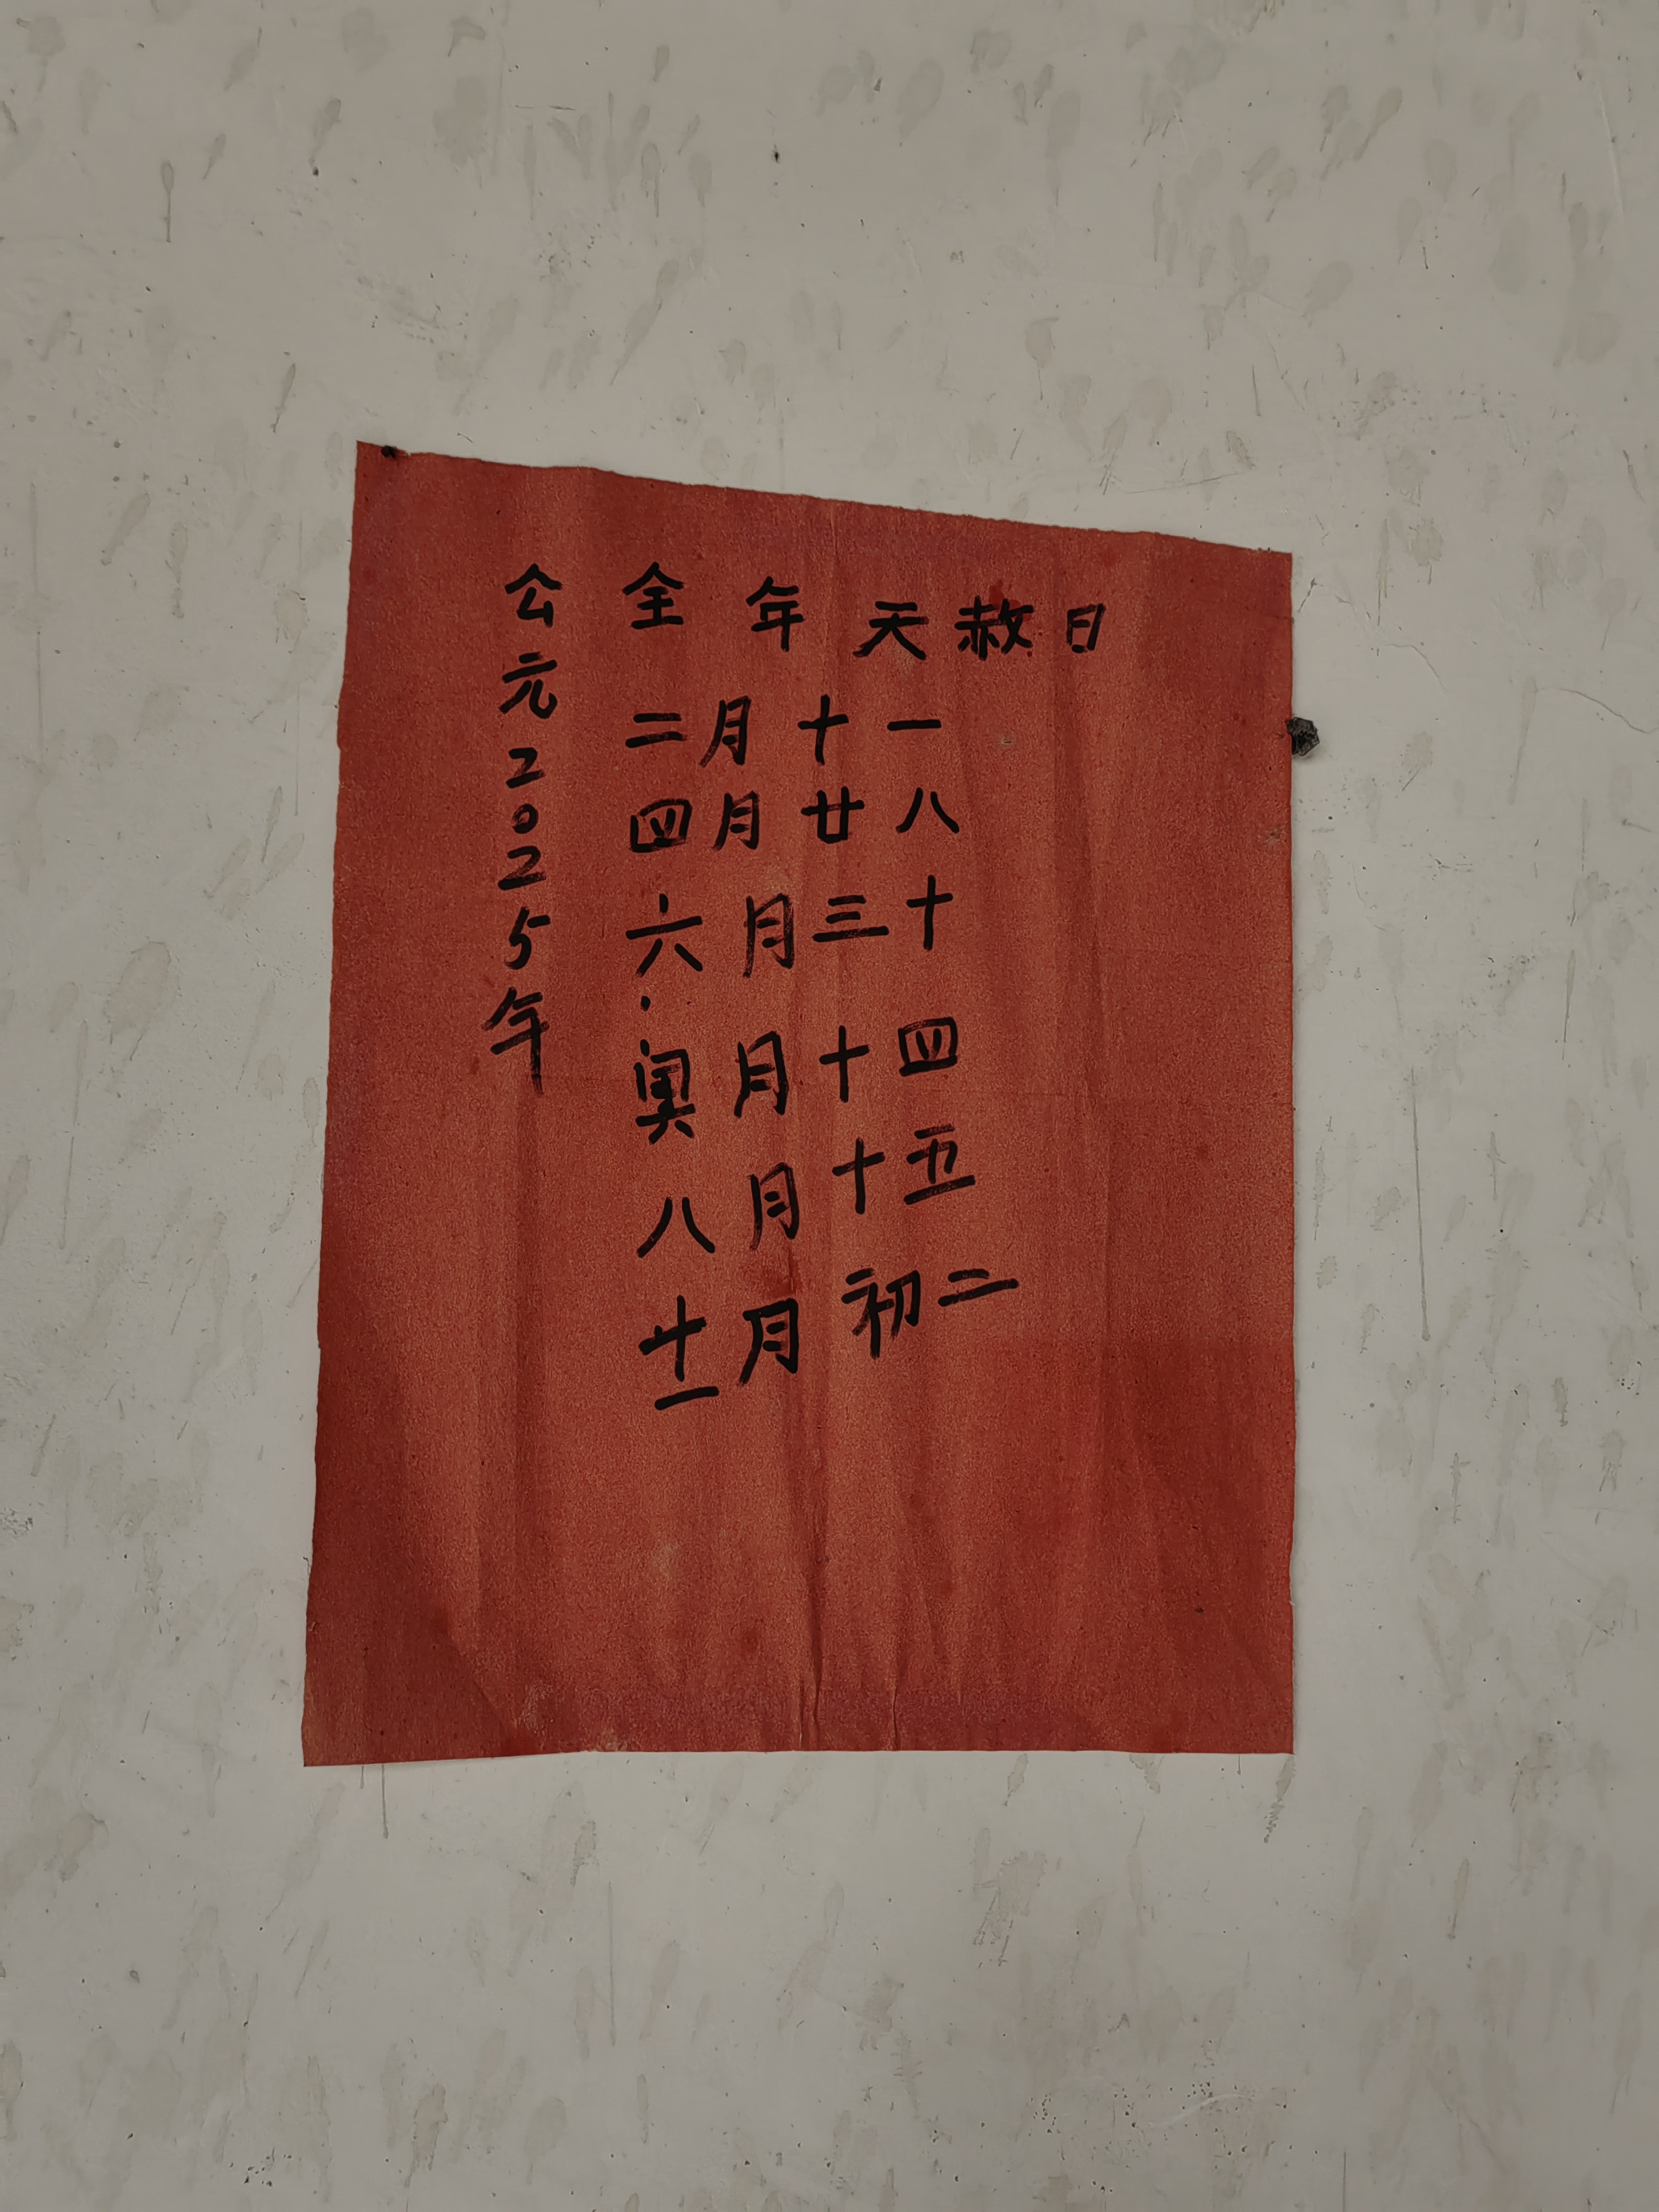 公元2025年
全年天赦日
二月十一
四月廿八
六月三十
奥月十四
八月十五
十一月初二